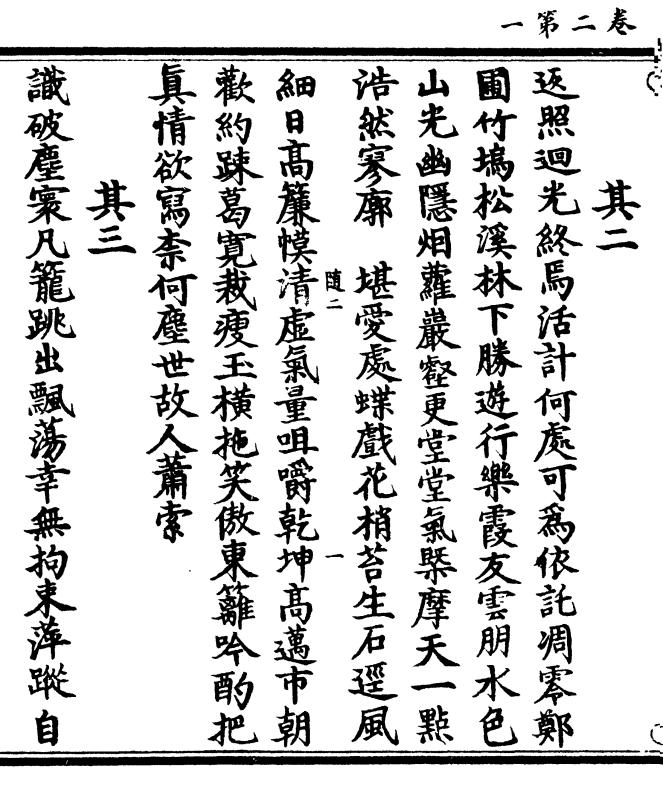 卷二第一
其二
返照迴光終焉活計何處可爲依託凋零鄭
圃竹塢松溪林下勝遊行樂霞友雲朋水色
山光幽隱烟蘿巖壑更堂堂氣槩摩天一點
浩然寥廓　堪愛處蝶戲花梢苔生石逕風
隨二　一
細日高簾幙清虛氣量咀嚼乾坤高邁市朝
歡約踈葛寬裁瘦玉橫拖笑傲東籬吟酌把
眞情欲寫柰何塵世故人蕭索
其三
識破塵寰凡籠跳出飄蕩幸無拘束萍蹤自